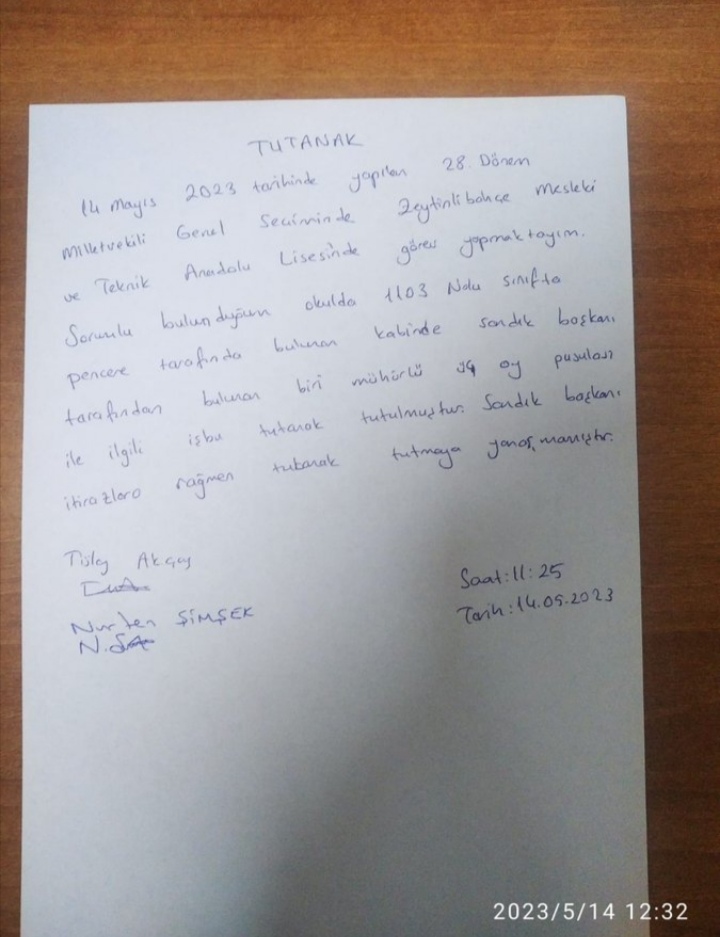 TUTANAK
14 Mayıs 2023 tarihinde yapılan 28. Dönem
Milletvekili Genel Seciminde Zeytinlibahçe Mesleki
ve Teknik Anadolu Lisesinde görev yapmaktayım.
Sorumlu bulunduğum okulda 1103 Nolu sınıfta
pencere tarafında bulunan kabinde sandık başkanı
tarafından bulunan biri mühürlü üç oy pusulası
ile ilgili işbu tutanak tutulmuştur. Sandık başkanı
itirazlara rağmen tutanak tutmaya yanaşmamıştır.
Akçay
Nurten ŞİMŞEK
Saat: 11:25
Tarih: 14.05.2023
2023/5/14 12:32